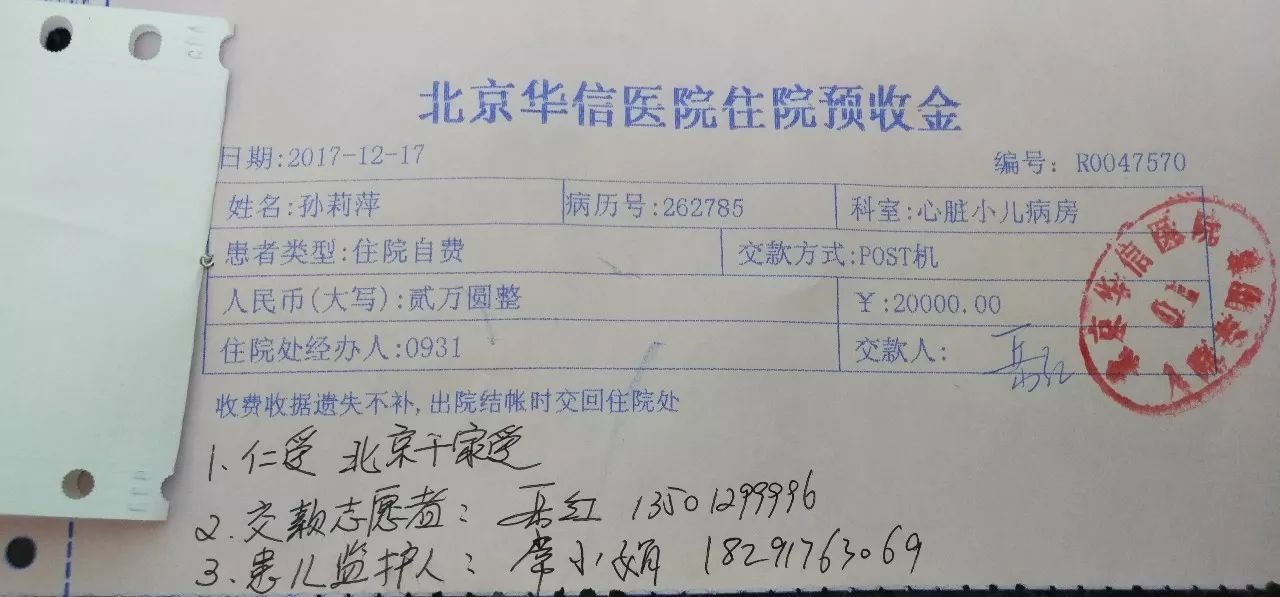 北京华信医院住院预收金
日期:2017-12-17 编号: R0047570
姓名:孙莉萍 病历号:262785 科室:心脏小儿病房
患者类型:住院自费 交款方式:POST机
人民币(大写):贰万圆整 ¥:20000.00
住院处经办人:0931 交款人: 岳红
收费收据遗失不补,出院结帐时交回住院处
北京华信医院
入院专用章
1、仁爱 北京千家爱
2、交款志愿者: 岳红 13501299996
3、患儿监护人: 常小娟 18291763069